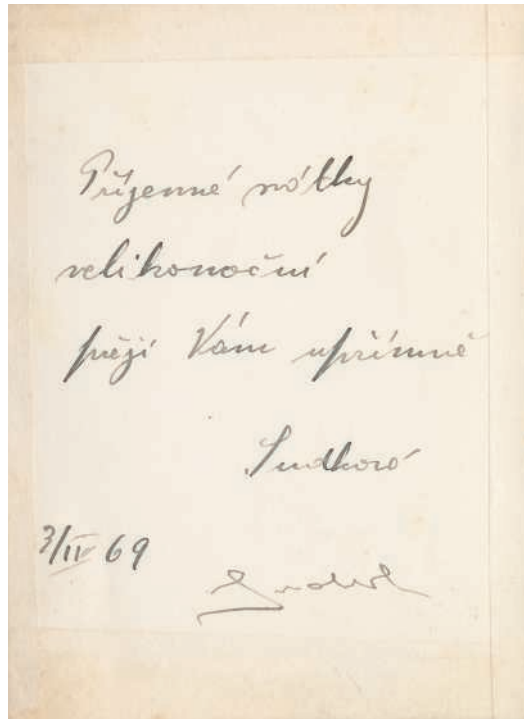 Příjemné svátky
velikonoční
přejí Vám upřímně
Sudkovi
3/IV 69
Sudek